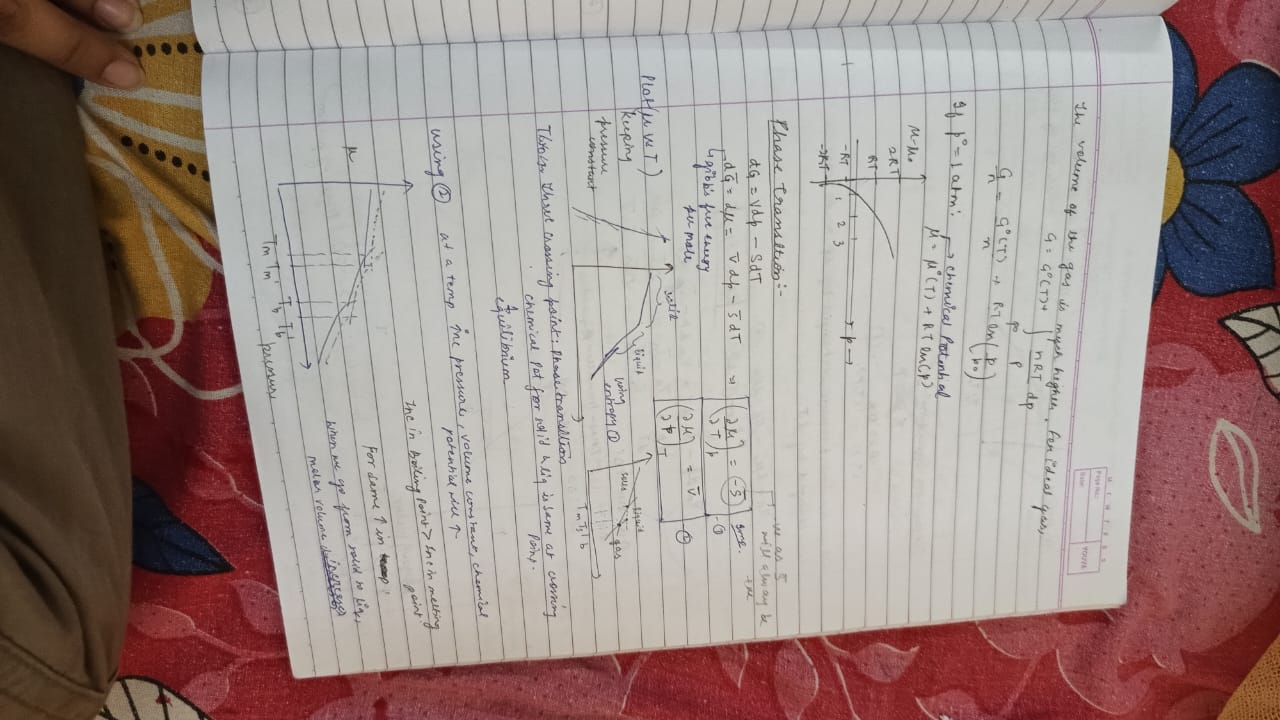 Page No.:
Date:
YOUVA
The volume of the gas is much higher. For ideal gas,
G = G°(T) + ∫ nRT dp
p° p
G/n = G°(T)/n + RT ln(p/p°)
If p° = 1 atm: → chemical potential
μ = μ°(T) + RT ln(p)
μ-μ₀
2RT
RT
-RT
-2RT
1 2 3
p →
Phase Transition:-
dG = Vdp - SdT
dG̅ = dμ = V̅dp - S̅dT ⇒ (∂μ/∂T)p = -S̅ ①
gibbs free energy
per mole
(∂μ/∂p)T = V̅ ②
-ve as S̅
will always be
+ve
Plot (μ vs T)
keeping
pressure
constant
solid
liquid
using
entropy ①
solid
liquid
gas
Tm Tb
three crossing point: Phase transition
chemical pot for solid & liq is same at crossing
point.
equilibrium
using ② at a temp inc pressure, volume constant, chemical
potential will ↑
Inc in boiling point > Inc in melting
point
For same ↑ in
When we go from solid to liq,
molar volume increases
μ
Tm Tm' Tb Tb'
pressure